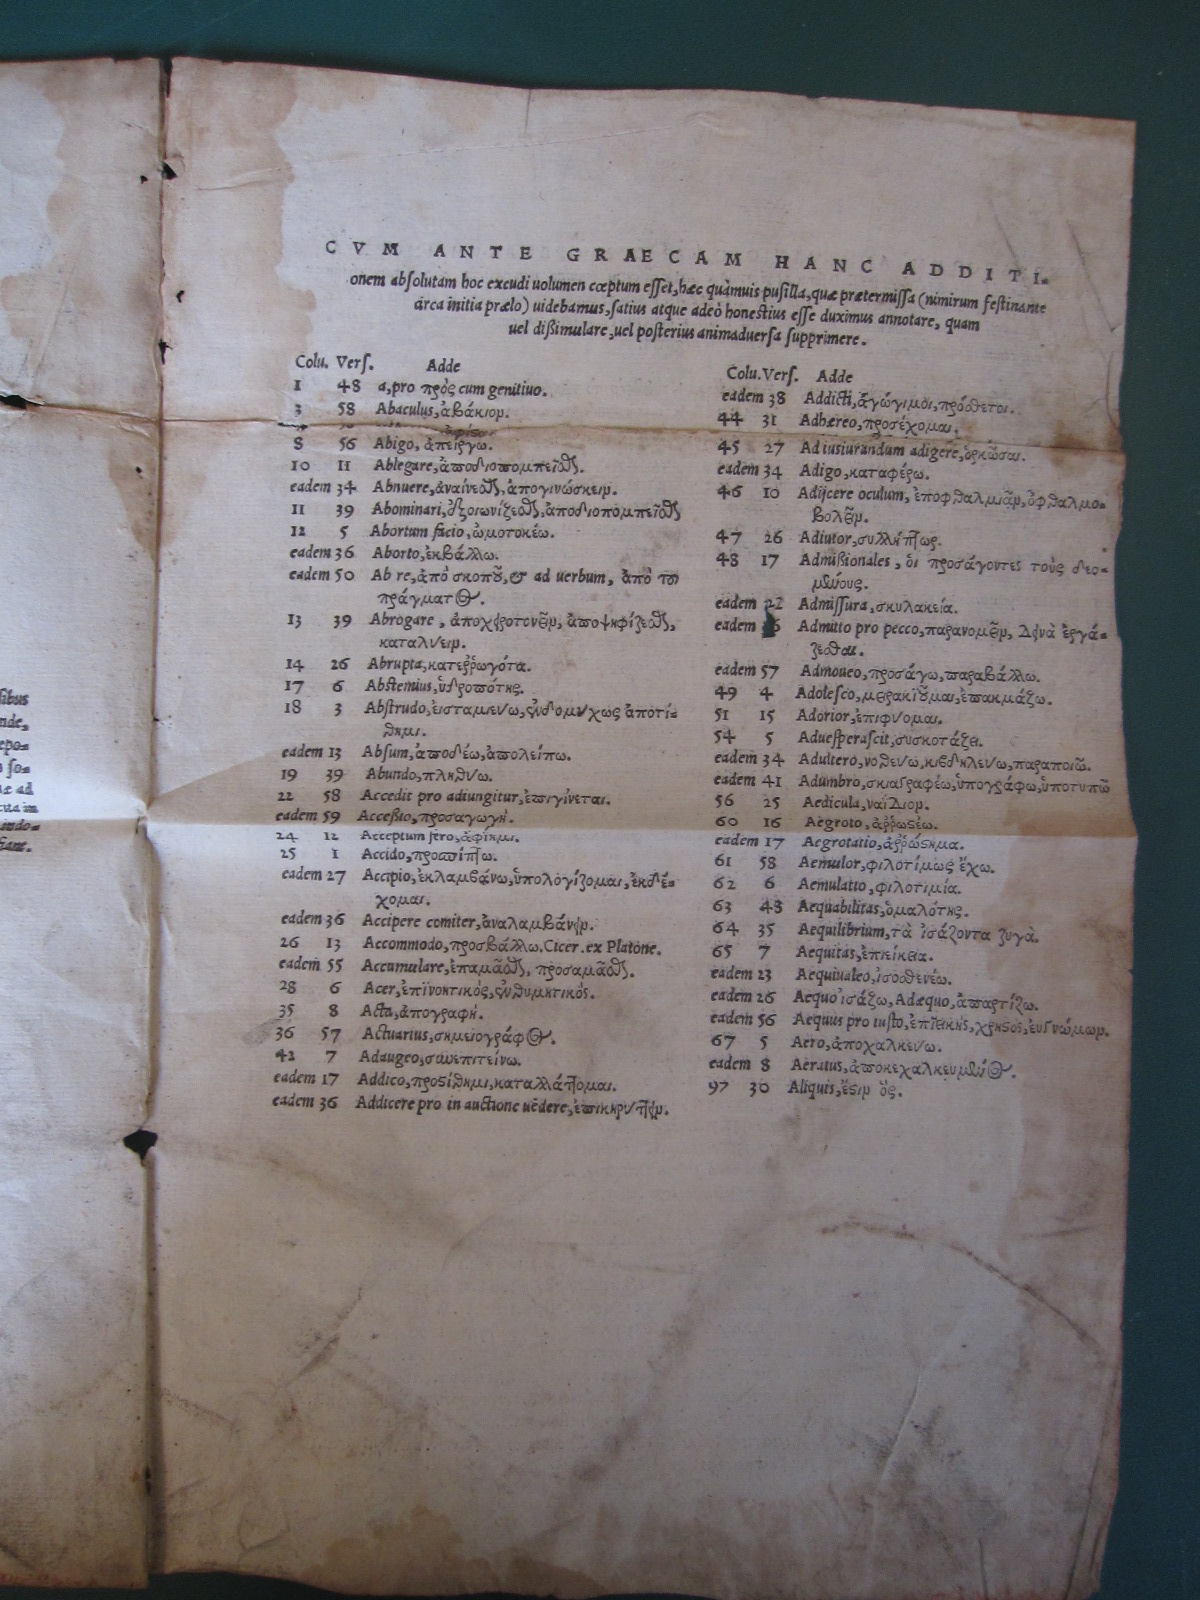 CVM ANTE GRAECAM HANC ADDITI-
onem absolutam hoc excudi uolumen cœptum esset, hæc quàmuis pusilla, quæ prætermissa (nimirum festinante
circa initia prælo) uidebamus, satius atque adeò honestius esse duximus annotare, quam
uel dissimulare, uel posterius animaduersa supprimere.
Colu. Vers. Adde
1 48 a, pro πρὸς cum genitiuo.
3 58 Abaculus, ἀβάκιον.
8 56 Abigo, ἀπείργω.
10 11 Ablegare, ἀποδιοπομπεῖσθαι.
eadem 34 Abnuere, ἀναίνεσθαι, ἀπογινώσκειν.
11 39 Abominari, ἐξοιωνίζεσθαι, ἀποδιοπόμπεῖσθαι
12 5 Abortum facio, ὠμοτοκέω.
eadem 36 Aborto, ἐκβάλλω.
eadem 50 Ab re, ἀπὸ σκοποῦ, & ad uerbum, ἀπὸ τοῦ
πράγματος.
13 39 Abrogare, ἀποχειροτονεῖν, ἀποψηφίζεσθαι,
καταλύειν.
14 26 Abrupta, κατεῤῥωγότα.
17 6 Abstemius, ὑδροπότης.
18 3 Abstrudo, ἐισταμιεύω, ἐνδομύχως ἀποτί-
θημι.
eadem 13 Absum, ἀποδέω, ἀπολείπω.
19 39 Abundo, πληθύω.
22 58 Accedit pro adiungitur, ἐπιγίνεται.
eadem 59 Accessio, προσαγωγή.
24 12 Acceptum fero, ἀφίημι.
25 1 Accido, προσπίπτω.
eadem 27 Accipio, ἐκλαμβάνω, ὑπολογίζομαι, ἐκδέ-
χομαι.
eadem 36 Accipere comiter, ἀναλαμβάνειν.
26 13 Accommodo, προσβάλλω. Cicer. ex Platone.
eadem 55 Accumulare, ἐπαμᾶσθαι, προσαμᾶσθαι.
28 6 Acer, ἐπινοητικὸς, ἐνθυμητικός.
35 8 Acta, ἀπογραφή.
36 57 Actuarius, σημειογράφος.
42 7 Adaugeo, συνεπιτείνω.
eadem 17 Addico, προστίθημι, καταλλάττομαι.
eadem 36 Addicere pro in auctione uēdere, ἐπικηρύττειν.
Colu. Vers. Adde
eadem 38 Addicti, ἀγώγιμοι, πρόσθετοι.
44 31 Adhæreo, προσέχομαι.
45 27 Ad iusiurandum adigere, ὁρκῶσαι.
eadem 34 Adigo, καταφέρω.
46 10 Adijcere oculum, ἐποφθαλμιᾶν, ὀφθαλμο-
βολεῖν.
47 26 Adiutor, συλλήπτωρ.
48 17 Admissionales, ὁι προσάγοντες τοὺς δεο-
μένους.
eadem 22 Admissura, σκυλακεία.
eadem Admitto pro pecco, παρανομεῖν, δεινὰ ἐργά-
ζεσθαι.
eadem 57 Admoueo, προσάγω, παραβάλλω.
49 4 Adolesco, μειρακιοῦμαι, ἐπακμάζω.
51 15 Adorior, ἐπιφύομαι.
54 5 Aduesperascit, συσκοτάζει.
eadem 34 Adultero, νοθεύω, κιβδηλεύω, παραποιῶ.
eadem 41 Adumbro, σκιαγραφέω, ὑπογράφω, ὑποτυπῶ
56 25 Aedicula, ναΐδιον.
60 16 Aegroto, ἀῤῥωστέω.
eadem 17 Aegrotatio, ἀῤῥώστημα.
61 58 Aemulor, φιλοτίμως ἔχω.
62 6 Aemulatio, φιλοτιμία.
63 48 Aequabilitas, ὁμαλότης.
64 35 Aequilibrium, τὰ ἰσάζοντα ζυγά.
65 7 Aequitas, ἐπιείκεια.
eadem 23 Aequiualeo, ἰσοσθενέω.
eadem 26 Aequo ἰσάζω, Adæquo, ἀπαρτίζω.
eadem 56 Aequus pro iusto, ἐπιεικὴς, χρηστὸς, ἐυγνώμων.
67 5 Aero, ἀποχαλκεύω.
eadem 8 Aeratus, ἀποκεχαλκευμένος.
97 30 Aliquis, ἔστιν ὅς.